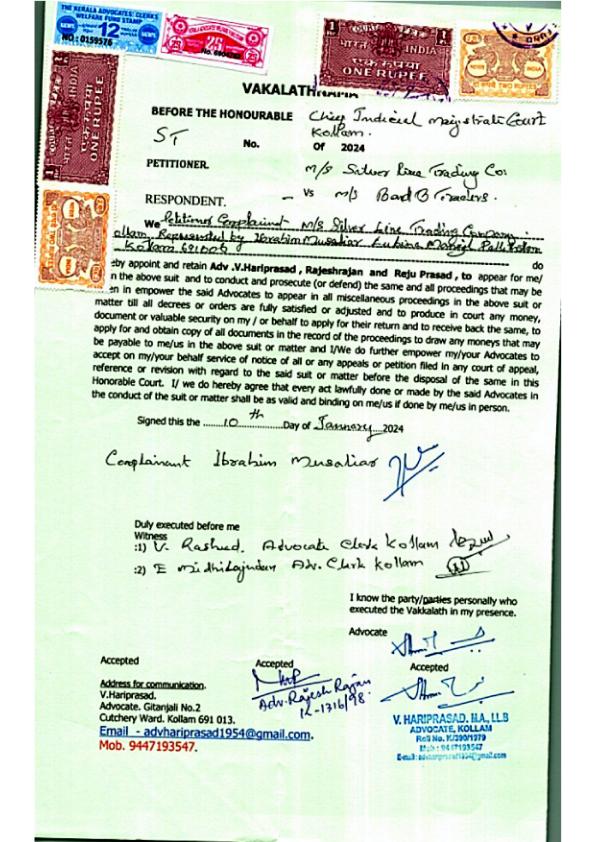 THE KERALA ADVOCATES' CLERKS
WELFARE FUND STAMP
12
NO : 0159576
25
INDIA
ONE RUPEE
भारत INDIA
एक रुपया
ONE RUPEE
INDIA
TWO RUPEES
VAKALATHNAMA
BEFORE THE HONOURABLE Chief Judicial Magistrate Court
Kollam.
ST No. Of 2024
PETITIONER. M/s Silver Line Trading Co:
Vs
RESPONDENT. M/s B and B Traders.
We Petitioner Complainant M/s Silver Line Trading Company
Kollam, Represented by Ibrahim Musaliar
Kollam 691005 do
by appoint and retain Adv .V.Hariprasad , Rajeshrajan and Reju Prasad , to appear for me/
n the above suit and to conduct and prosecute (or defend) the same and all proceedings that may be
en in empower the said Advocates to appear in all miscellaneous proceedings in the above suit or
matter till all decrees or orders are fully satisfied or adjusted and to produce in court any money,
document or valuable security on my / or behalf to apply for their return and to receive back the same, to
apply for and obtain copy of all documents in the record of the proceedings to draw any moneys that may
be payable to me/us in the above suit or matter and I/We do further empower my/your Advocates to
accept on my/your behalf service of notice of all or any appeals or petition filed in any court of appeal,
reference or revision with regard to the said suit or matter before the disposal of the same in this
Honorable Court. I/ we do hereby agree that every act lawfully done or made by the said Advocates in
the conduct of the suit or matter shall be as valid and binding on me/us if done by me/us in person.
Signed this the .......10th.......Day of January....2024
Complainant Ibrahim Musaliar
Duly executed before me
Witness
:1) V. Rasheed. Advocate Clerk Kollam
:2) E Adv. Clerk Kollam
I know the party/parties personally who
executed the Vakkalath in my presence.
Advocate
Accepted Accepted Accepted
Address for communication.
V.Hariprasad.
Advocate. Gitanjali No.2
Cutchery Ward. Kollam 691 013.
Email - advhariprasad1954@gmail.com.
Mob. 9447193547.
Adv. Rajesh Rajan
K-1316/98.
V. HARIPRASAD. M.A., LL.B
ADVOCATE, KOLLAM
Roll No. K/390/1979
Mob : 9447193547
E-mail : advhariprasad1954@gmail.com